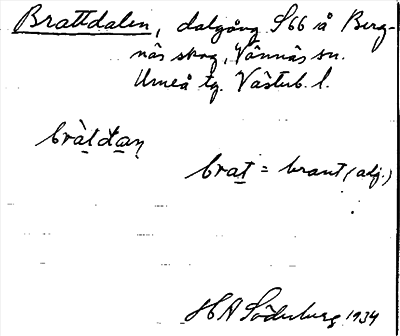 Brattdalen, dalgång S66 iå Berg-
näs skog, Vännäs sn.
Umeå tg. Västerb. l.
bràtdaṇ
brat = brant (adj.)
H A Söderberg 1934